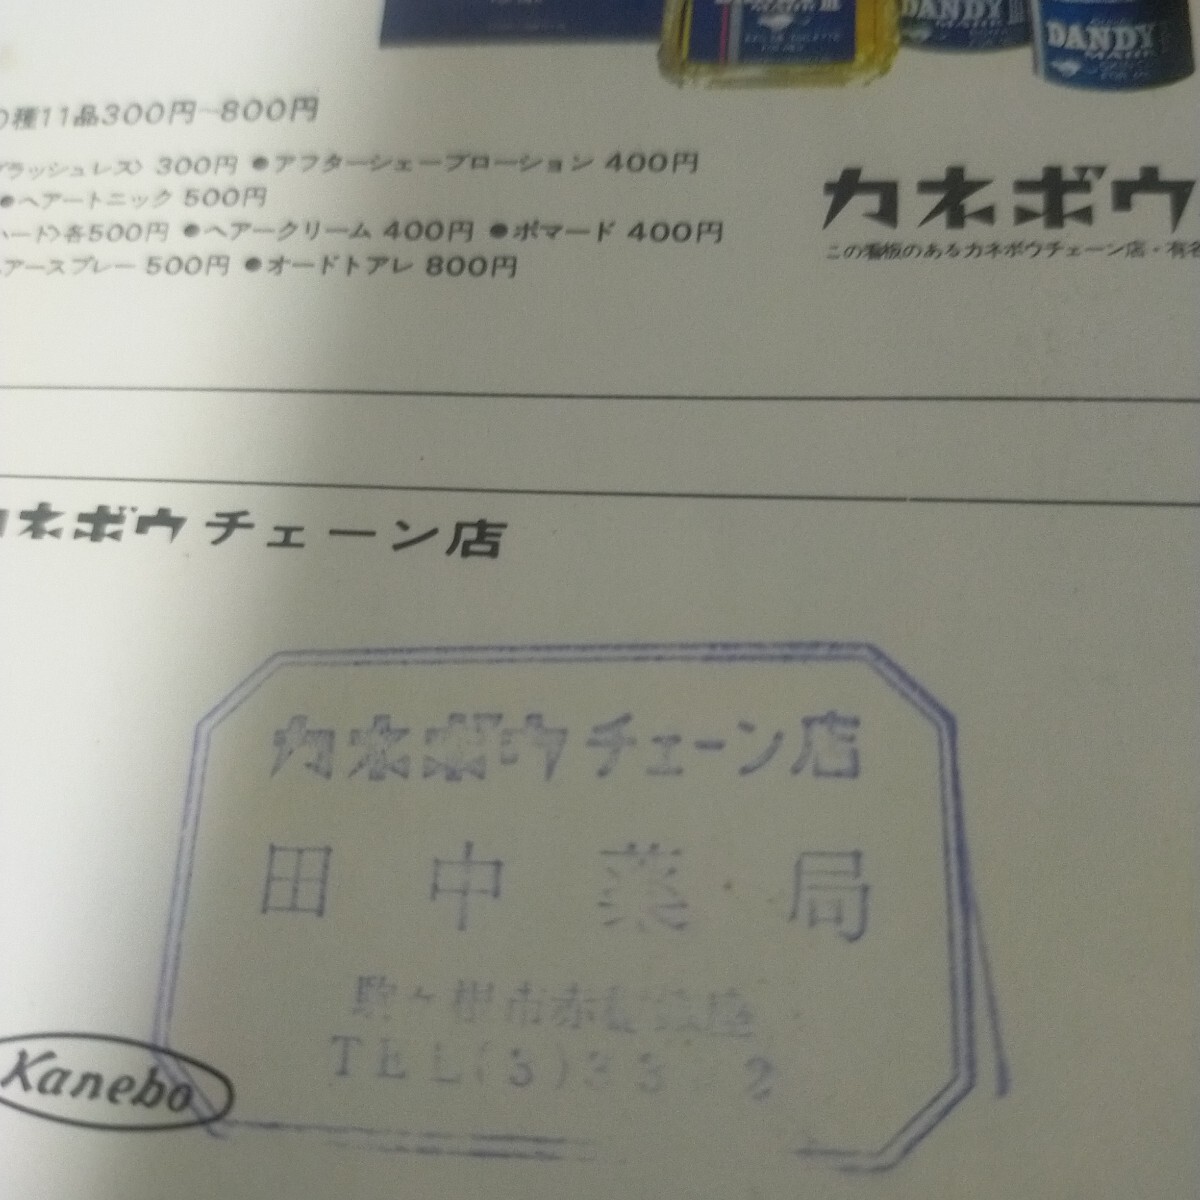 DANDY
DANDY
の種11品300円~800円
ブラッシュレス〉300円 ●アフターシェーブローション 400円
●ヘアートニック 500円
ハード〉各500円 ●ヘアークリーム 400円 ●ポマード 400円
ヘアースプレー 500円 ●オードトアレ 800円
カネボウ
この看板のあるカネボウチェーン店・有名
カネボウ チェーン店
カネボウチェーン店
田中薬局
駒ヶ根市赤穂銀座
TEL(3)33 2
Kanebo